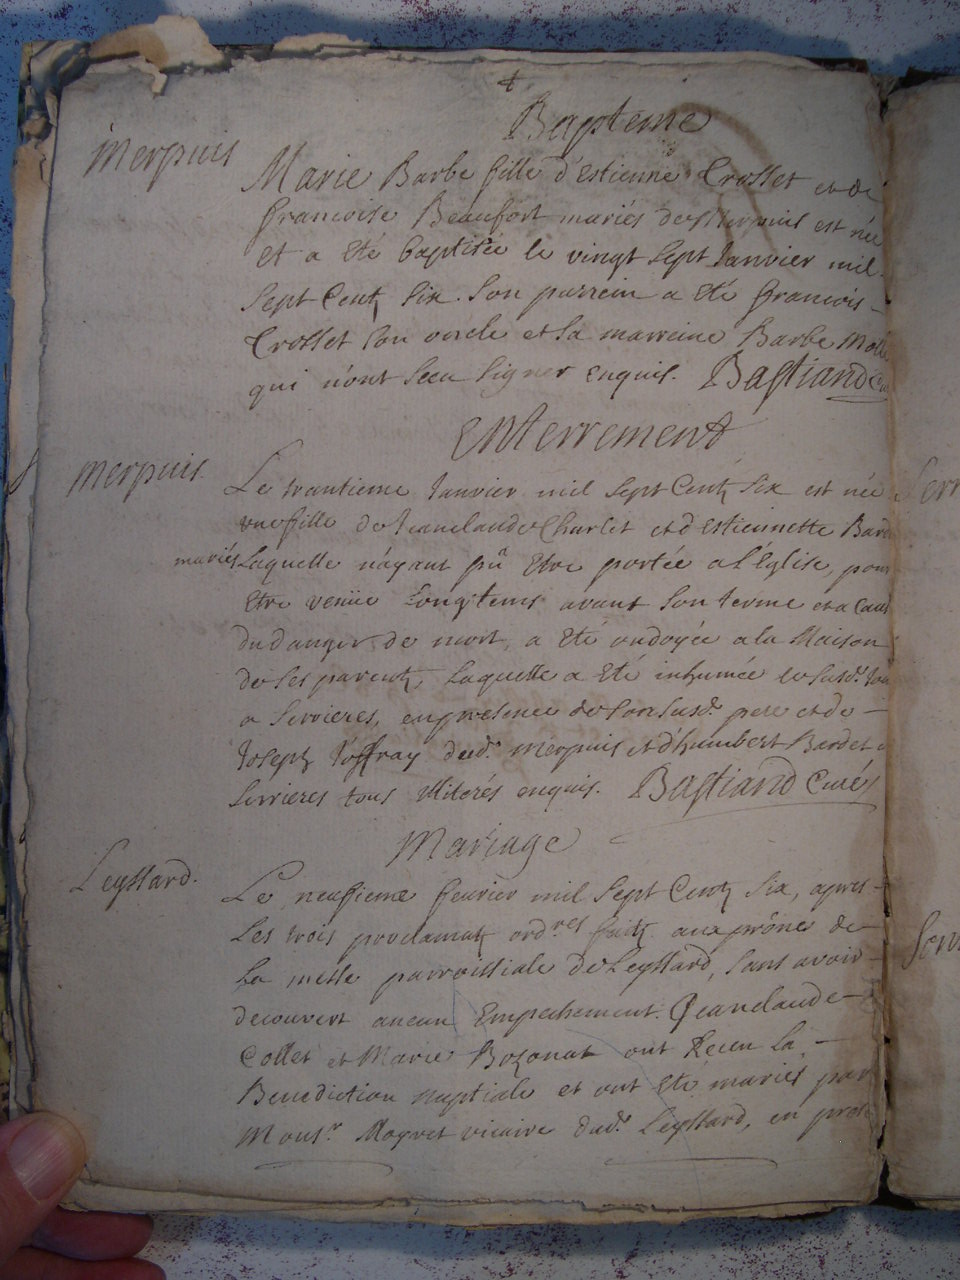 Bapteme
merpuis
Marie Barbe fille d'Estienne Crosset et de
francoise Beaufort mariés de Merpuis est née
et a eté baptisée le vingt sept Janvier mil
sept Centz six. Son parrein a eté francois
Crosset son oncle et sa marreine Barbe
qui n'ont sceu signer enquis. Bastiand
Enterrement
merpuis.
Le trantieme Janvier mil sept Centz six est née
vne fille de Jeanclaude Charlet et d'Estiennette
mariés Laquelle n'ayant pû Etre portée a l'Eglise, pour
Etre venüe Longtems avant son terme et a
du danger de mort, a eté ondoyée a la Maison
de ses parentz, Laquelle a Eté inhumée le susd.
a Serrieres, en presence de son susd. pere et de
Joseph Joffray dud. merpuis et d'humbert Bardet
Serrieres tous illiterés enquis. Bastiand Curé
Mariage
Leyssard.
Le neufieme fevrier mil sept Centz six, apres
Les trois proclamatz ord.res faitz au prône de
La messe parroissiale de Leyssard, sans avoir
decouvert aucun Empechement. Jeanclaude
Collet et Marie Bozonat ont Receu la
Benediction nuptiale et ont eté mariés par
Mons.r vicaire dud. Leyssard, en